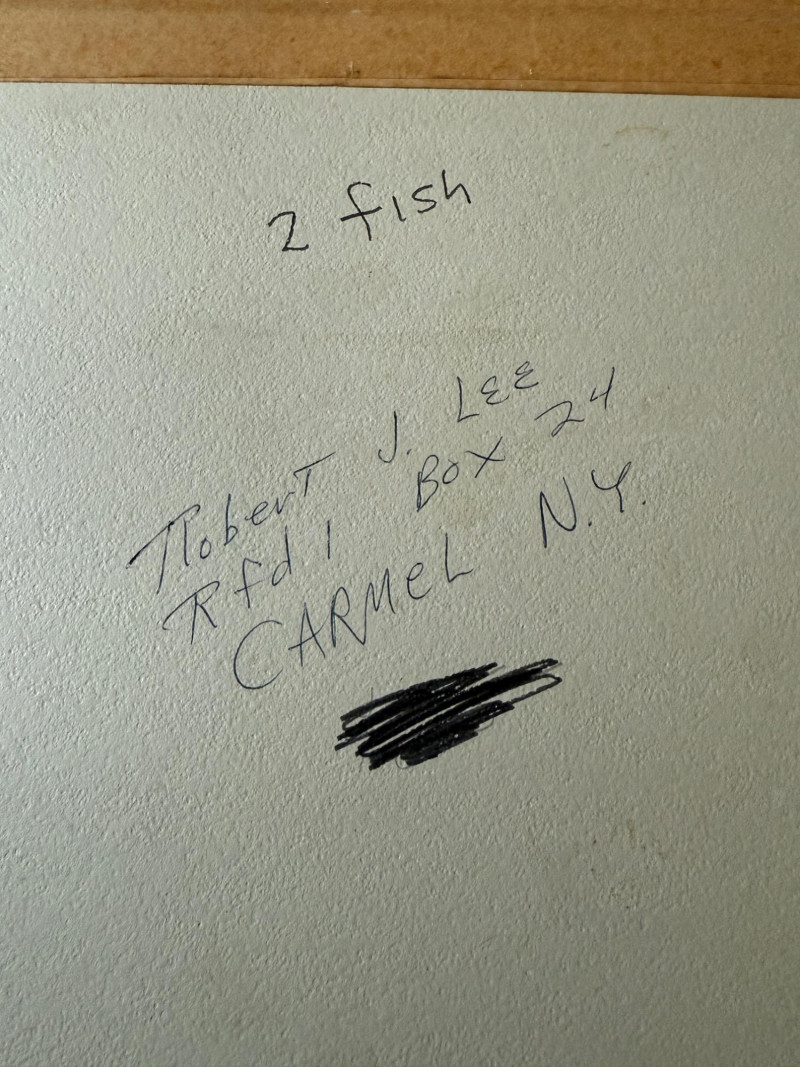 2 fish
Robert J. LEE
Rfd 1 Box 24
CARMEL N.Y.